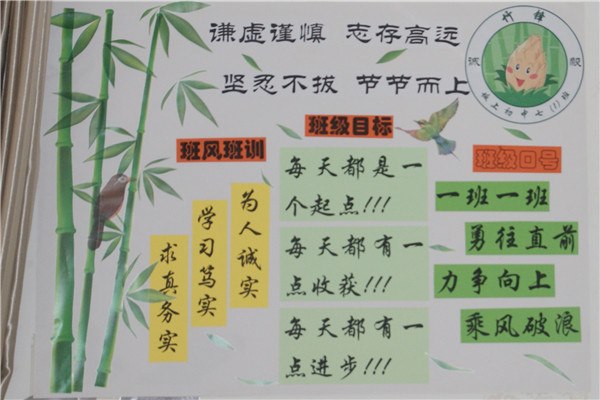 谦虚谨慎 志存高远
坚忍不拔 节节而上
竹锋
诚毅
坂上初中七(1)班
班风班训
为人诚实
学习笃实
求真务实
班级目标
每天都是一
个起点!!!
每天都有一
点收获!!!
每天都有一
点进步!!!
班级口号
一班一班
勇往直前
力争向上
乘风破浪